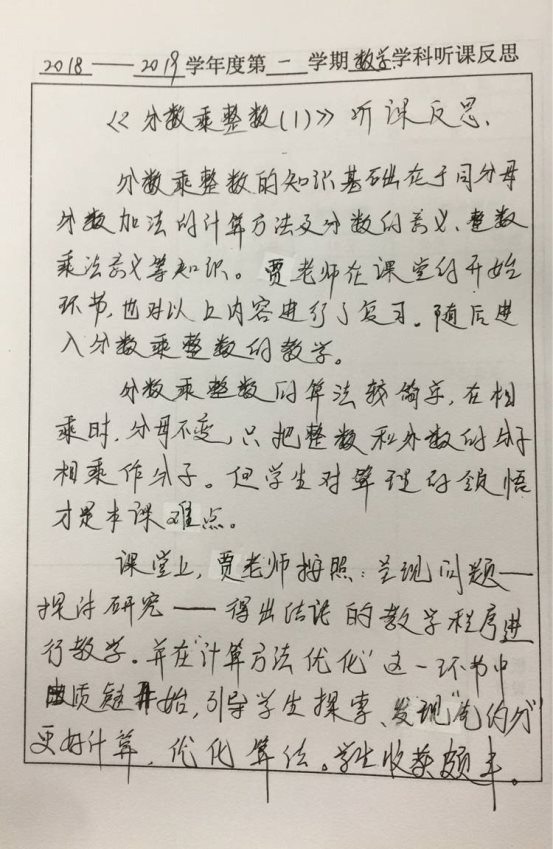 2018——2019学年度第一学期数学学科听课反思
《分数乘整数(1)》听课反思.
分数乘整数的知识基础在于同分母
分数加法的计算方法及分数的意义、整数
乘法意义等知识。贾老师在课堂的开始
环节,也对以上内容进行了复习。随后进
入分数乘整数的教学。
分数乘整数的算法较简单,在相
乘时,分母不变,只把整数和分数的分子
相乘作分子。但学生对算理的领悟
才是本课难点。
课堂上,贾老师按照:呈现问题—
探讨研究——得出结论的教学程序进
行教学。并在"计算方法优化"这一环节中
由质疑开始,引导学生探索、发现"先约分"
更好计算,优化算法。学生收获颇丰。